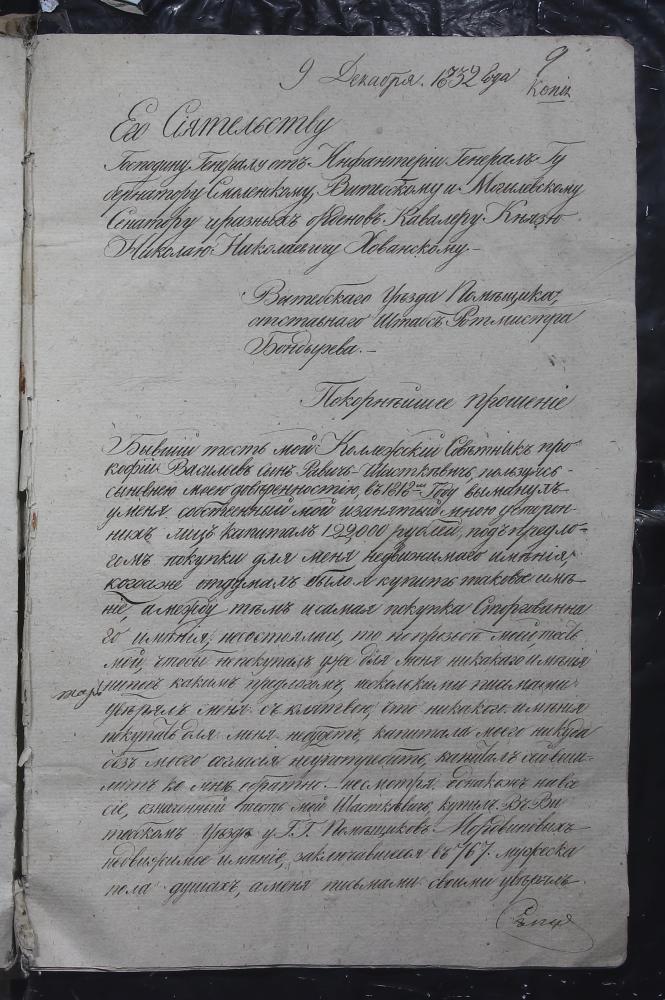 9
9 Декабря. 1832 Года
Копія
Его Сіятельству
Господину Генералу отъ Инфантеріи Генералъ Гу
бернатору Смоленскому, Витебскому и Могилевскому
Сенатору и разныхъ орденовъ Кавалеру Князю
Николаю Николаевичу Хованскому.-
Витебскаго Уѣзда Помѣщика,
отставнаго Штабсъ Ротмистра
Бондырева.-
Покорнѣйшее прошеніе
Бывшій тесть мой Коллежскій Совѣтникъ Про
кофій Васильевъ сынъ Равичъ-Шасткевичъ, пользуясь
сыновнею моею довѣренностію, въ 1812мъ Году выманулъ
у меня собственный мой и занятый мною у сторон-
нихъ лицъ капиталъ 122,000 рублей, подъ предло-
гомъ покупки для меня недвижимого имѣнія;
когда же отдумалъ было я купить таковое имѣ-
ніе, а между тѣмъ и самая покупка Сторгованна
го имѣнія, несостоялась, то по прозьбѣ моей, тесть
мой, чтобы непокупалъ уже для меня никакаго имѣнія
ни подъ какимъ предлогомъ, нѣсколькими письмами
увѣрялъ меня съ клятвою, что никакого имѣнія
покупать для меня небудетъ, капитала моего никуда
безъ моего согласія неупотребитъ, капиталъ
ко мнѣ обратно - несмотря однакожъ на все
сіе, означенный тесть мой Шасткевичъ, купилъ въ Ви
тебскомъ Уѣздѣ у Г.Г. Помѣщиковъ
недвижимое имѣніе, заключавшееся въ 767. мужеска
пола душахъ, а меня письмами своими увѣрилъ